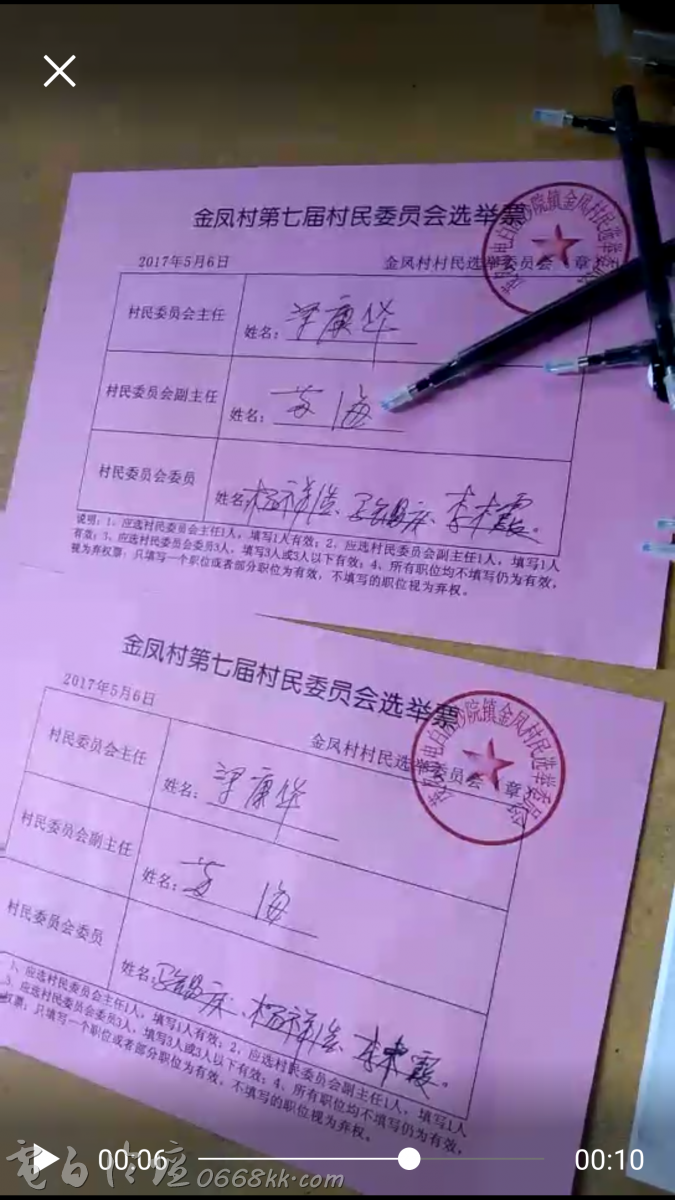 金凤村第七届村民委员会选举票
2017年5月6日
金凤村村民选举委员会(章)
村民委员会主任
姓名:梁康华
村民委员会副主任
姓名:苏海
村民委员会委员
姓名:
说明:1、应选村民委员会主任1人,填写1人有效;2、应选村民委员会副主任1人,填写1人
有效;3、应选村民委员会委员3人,填写3人或3人以下有效;4、所有职位均不填写仍为有效,
视为弃权票;只填写一个职位或者部分职位为有效,不填写的职位视为弃权。
金凤村第七届村民委员会选举票
2017年5月6日
金凤村村民选举委员会(章)
村民委员会主任
姓名:梁康华
村民委员会副主任
姓名:苏海
村民委员会委员
姓名:
1、应选村民委员会主任1人,填写1人有效;2、应选村民委员会副主任1人,填写1人
3、应选村民委员会委员3人,填写3人或3人以下有效;4、所有职位均不填写仍为有效,
权票;只填写一个职位或者部分职位为有效,不填写的职位视为弃权。
00:06
00:10
電白论坛 0668kk.com